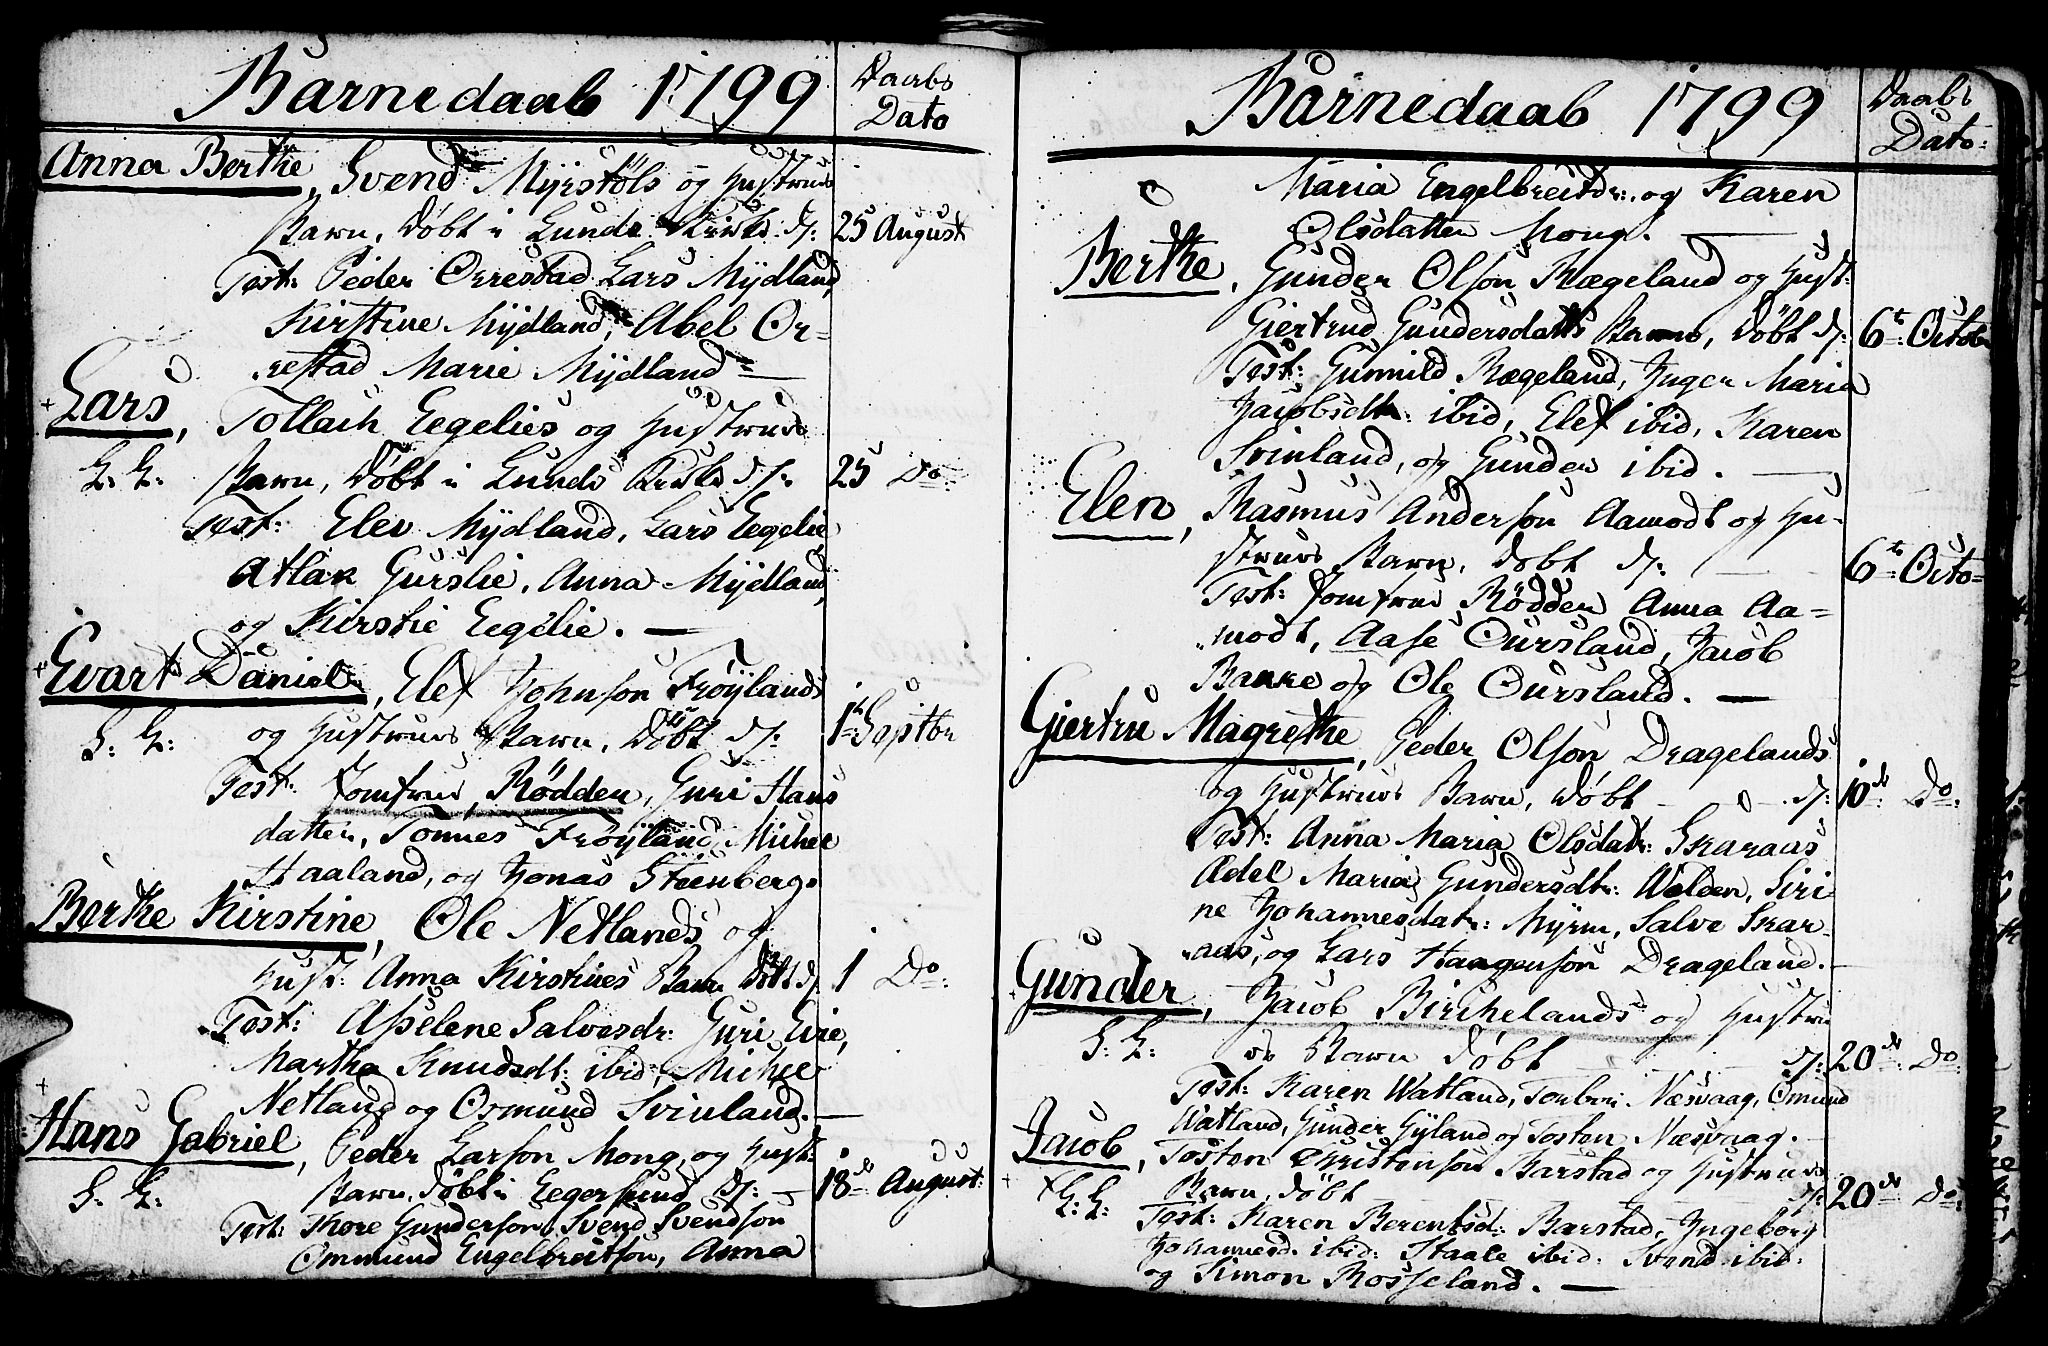 Barnedaab 1799
Daabs
Dato
Anna Berthe, Svend Myrstøls og Hustrues
Barn, døbt i Lunde Kirke d: 25 August
Test: Peder Orrestad Lars Mydland,
Kirstine Mydland, Abel Or-
restad Marie Mydland
Lars, Tollach Eegelies og Hustrues
L. L. Barn, døbt i Lunds Kirke d: 25 Do
Test: Elev Mydland, Lars Eegelie,
Atlak Gurslie, Anna Mydland,
og Kirstie Eegelie.
Evart Daniel, Elef Johnson Frøylands
S: L: og Hustrues Barn, Døbt d: 1te Septbr
Test: Jomfrue Rødder, Guri Hans
datter, Tonnes Frøyland, Michel
Haaland, og Jonas Steenberg.
Berthe Kirstine, Ole Netlands og
Hust: Anna Kirstines Barn døbt d: 1 Do:
Test: Asselene Salvesdr: Guri Evie,
Martha Knudsdt: ibid, Michel
Netland og Osmund Svinland.
Hans Gabriel, Peder Larson Mong og Hust:
S: L: Barn, døbt i Egersund d: 18de August:
Test: Thore Gunderson, Svend Svendson
Ommund Engelbreitson, Anna
Barnedaab 1799
Daabs
Dato:
Maria Engelbreitdr: og Karen
Olsdatter Mong.
Berthe, Gunder Olson Rægeland og Hust:
Giertrud Gundersdatts Barn, døbt d: 6te Octob
Test: Gunnild Rægeland, Inger Maria
Jacobsdt: ibid, Elef ibid, Karen
Svinland, og Gunder ibid.
Elen, Rasmus Anderson Aamodt og Hu-
strues Barn, døbt d: 6te Octo=
Test: Jomfrue Rødder Anna Aa=
modt, Aase Oursland, Jacob
Bakke og Ole Oursland.
Giertru Magrethe, Peder Olson Dragelands
og Hustrues Barn, døbt d: 10de Do:
Test: Anna Maria Olsdatr: Skaraas
Adel Maria Gundersdtr: Wolden, Siri
ne Johannesdatr: Myrm, Salve Skar-
aas, og Lars Haagenson Drageland.
Gunder, Jacob Birchelands og Hustru
S: L: es Barn døbt d: 20de Do
Test: Karen Watland, Torbor Næsvaag, Omund
Watland, Gunder Gyland og Tosten Næsvaag.
Jacob, Tosten Christenson Barstad og Hustrues
L: L: Barn, døbt d: 20de Do:
Test: Karen Berentsd: Barstad, Ingeborg
Johannesd. ibid: Staale ibid. Svend ibid:
og Simon Rosseland.